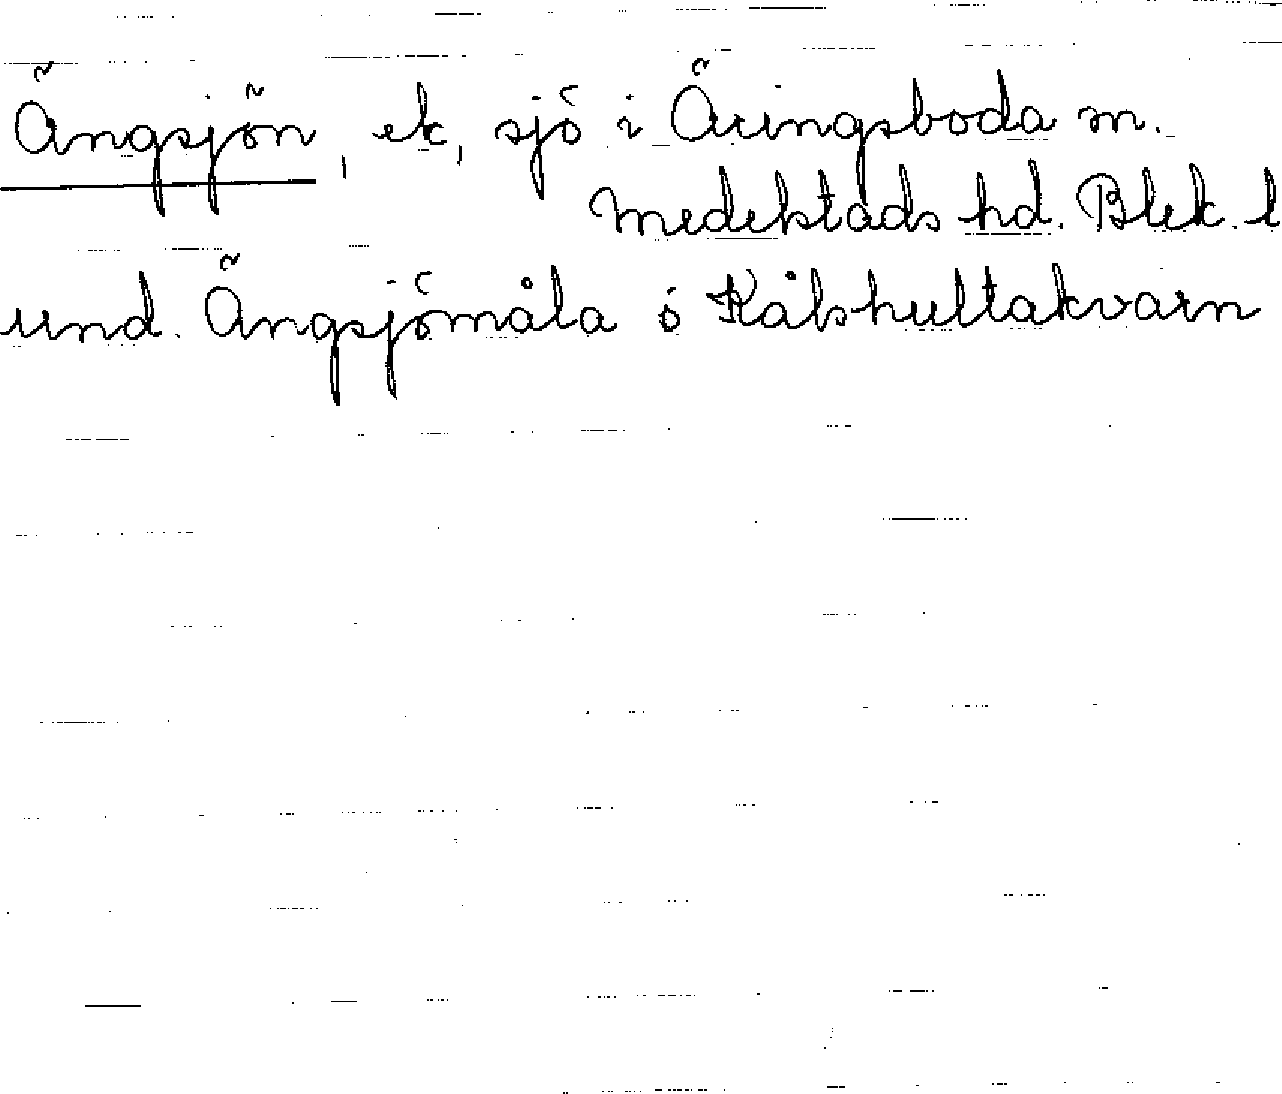 Ängsjön, ek, sjö i Äringsboda m.
Medelstads hd. Blek. l
und. Ängsjömåla ö Kålshultakvarn